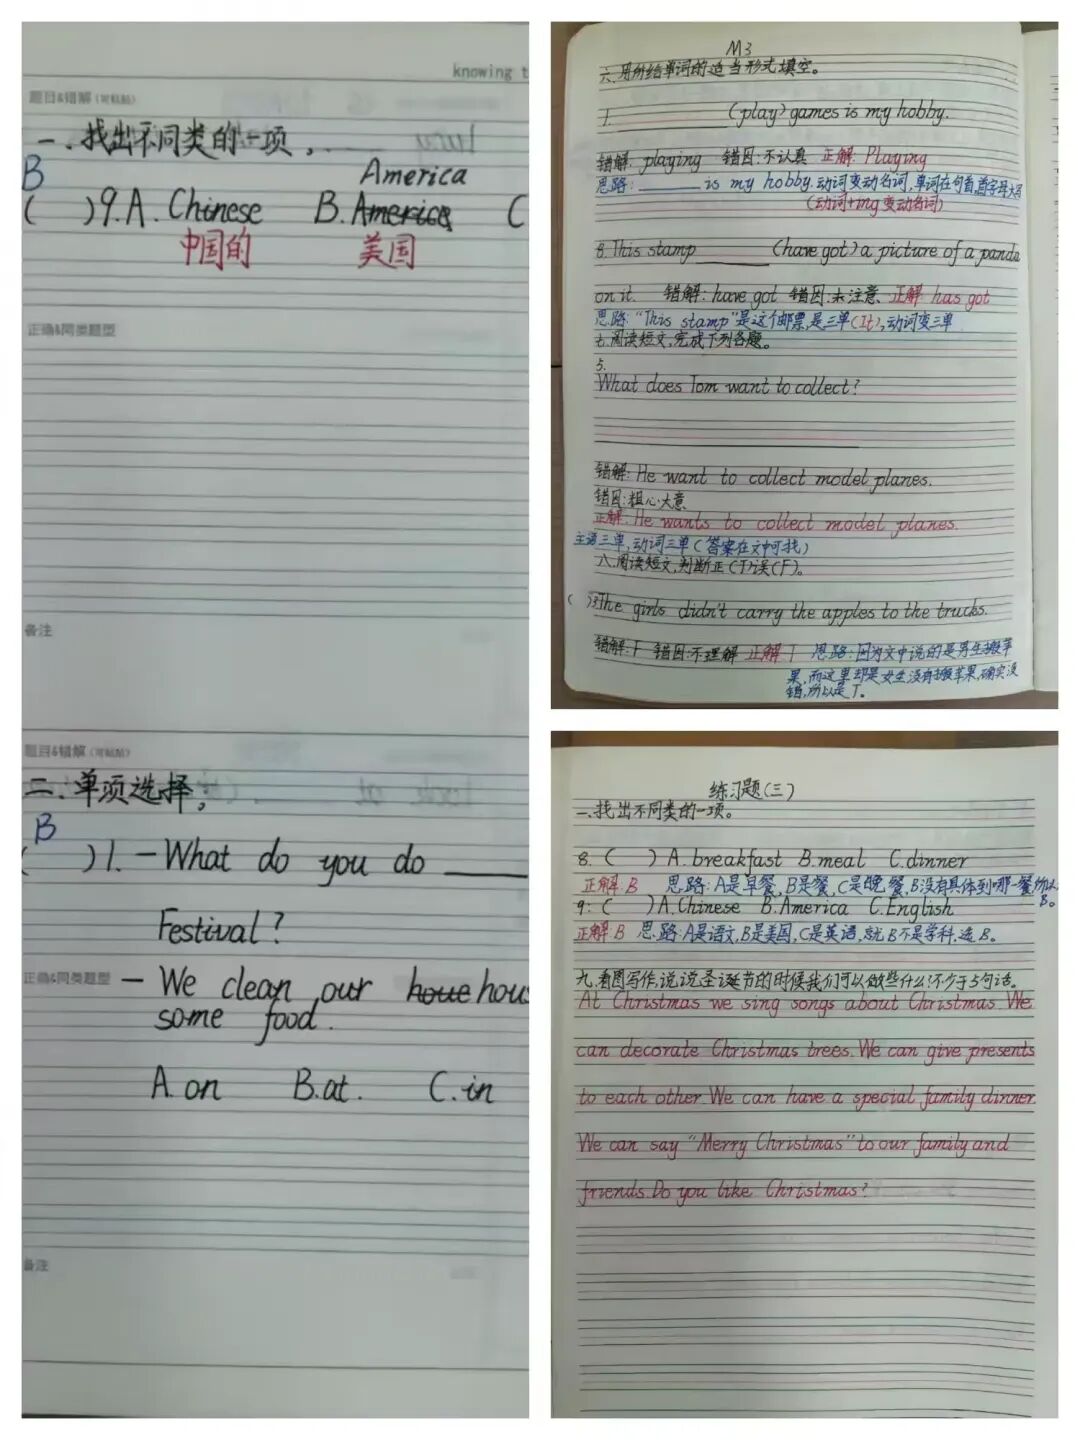 knowing t
题目&错解(可粘贴)
一、找出不同类的一项。
B America
( )9.A.Chinese B.America C
中国的 美国
正确&同类题型
备注
题目&错解(可粘贴)
二.单项选择,
B
( )1.-What do you do ____
Festival?
正确&同类题型
-We clean our houe hous
some food.
A.on B.at. C.in
备注
M3
六、用所给单词的适当形式填空。
1.________(play)games is my hobby.
错解:playing 错因:不认真 正解:Playing
思路:______is my hobby.动词变动名词,单词在句首,首字母大写
(动词+ing变动名词)
8.This stamp ______(have got)a picture of a panda
on it. 错解:have got 错因:未注意、正解:has got
思路:"This stamp"是这个邮票,是三单(It),动词变三单
七.阅读短文,完成下列各题。
5.
What does Tom want to collect?
错解:He want to collect model planes.
错因:粗心大意
正解:He wants to collect model planes.
主语三单,动词三单(答案在文中可找)
八.阅读短文,判断正(T)误(F)。
( )3.The girls didn't carry the apples to the trucks.
错解:F 错因:不理解 正解T 思路:因为文中说的是男生搬苹
果,而这里却是女生没有搬苹果,确实没
错,所以是T。
练习题(三)
一、找出不同类的一项。
8.( )A.breakfast B.meal C.dinner
正解:B 思路:A是早餐,B是餐,C是晚餐,B没有具体到哪一餐,所以
B。
9:( )A.Chinese B.America C.English
正解:B 思路:A是语文,B是美国,C是英语,就B不是学科,选B。
九.看图写作,说说圣诞节的时候我们可以做些什么?不少于5句话。
At Christmas we sing songs about Christmas.We
can decorate Christmas trees.We can give presents
to each other.We can have a special family dinner.
We can say "Merry Christmas"to our family and
friends.Do you like Christmas?